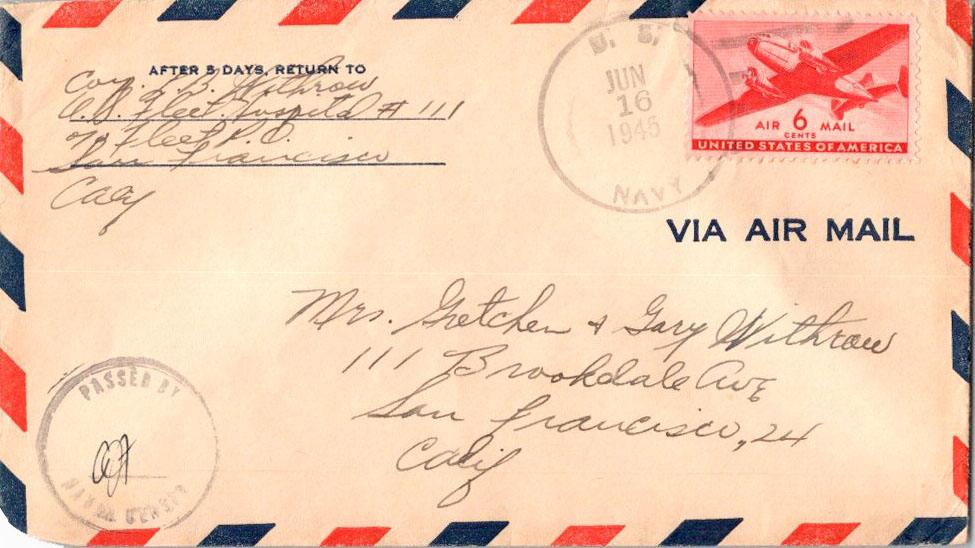 AFTER 5 DAYS, RETURN TO
Withrow
U.S. Fleet Hospital # 111
℅ Fleet P.O.
San Francisco
Calif
U. S.
JUN
16
1945
NAVY
AIR 6 MAIL
CENTS
UNITED STATES OF AMERICA
VIA AIR MAIL
Mrs. Gretchen & Gary Withrow
111 Brookdale Ave
San Francisco, 24
Calif
PASSED BY
NAVAL CENSOR